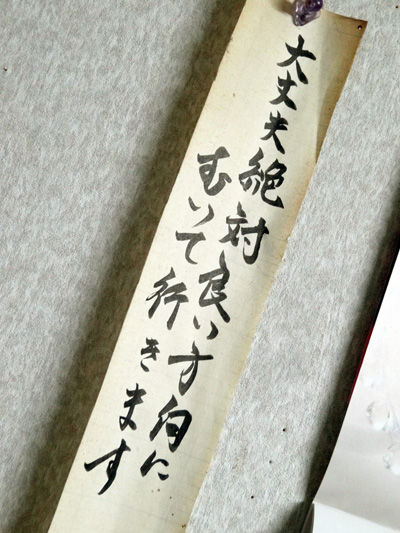 大丈夫絶対良い方向に
むいて行きます